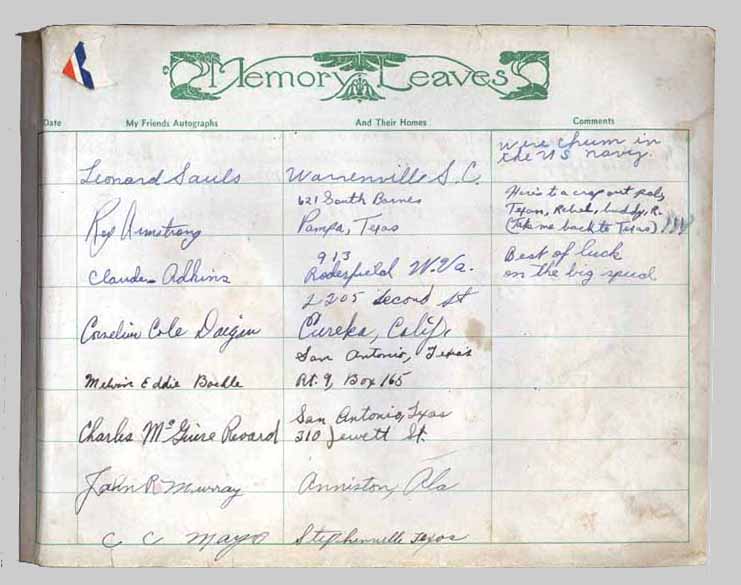 Memory Leaves
Date My Friends Autographs And Their Homes Comments
Were chum in
the US navy.
Leonard Sauls Warrenville S.C.
621 South Barnes
Rex Armstrong Pampa, Texas
Here's to a crap out pal,
Texan, Rebel, buddy, R.
(Take me back to Texas) !!!!
913
Claude Adkins Roderfield W.Va.
Best of luck
on the big spud
2205 Second St
Cornelius Cole Daigan Eureka, Calif.
San Antonio, Texas
Melvin Eddie Rt. 9, Box 165
San Antonio, Texas
Charles McGuire Revard 310 Jewett St.
John R Murray Anniston, Ala
C C Mayo Stephenville Texas